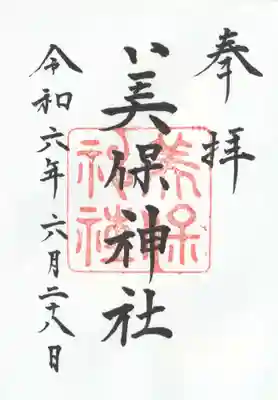 奉拝
美保神社
令和六年六月二十八日
美保
神社